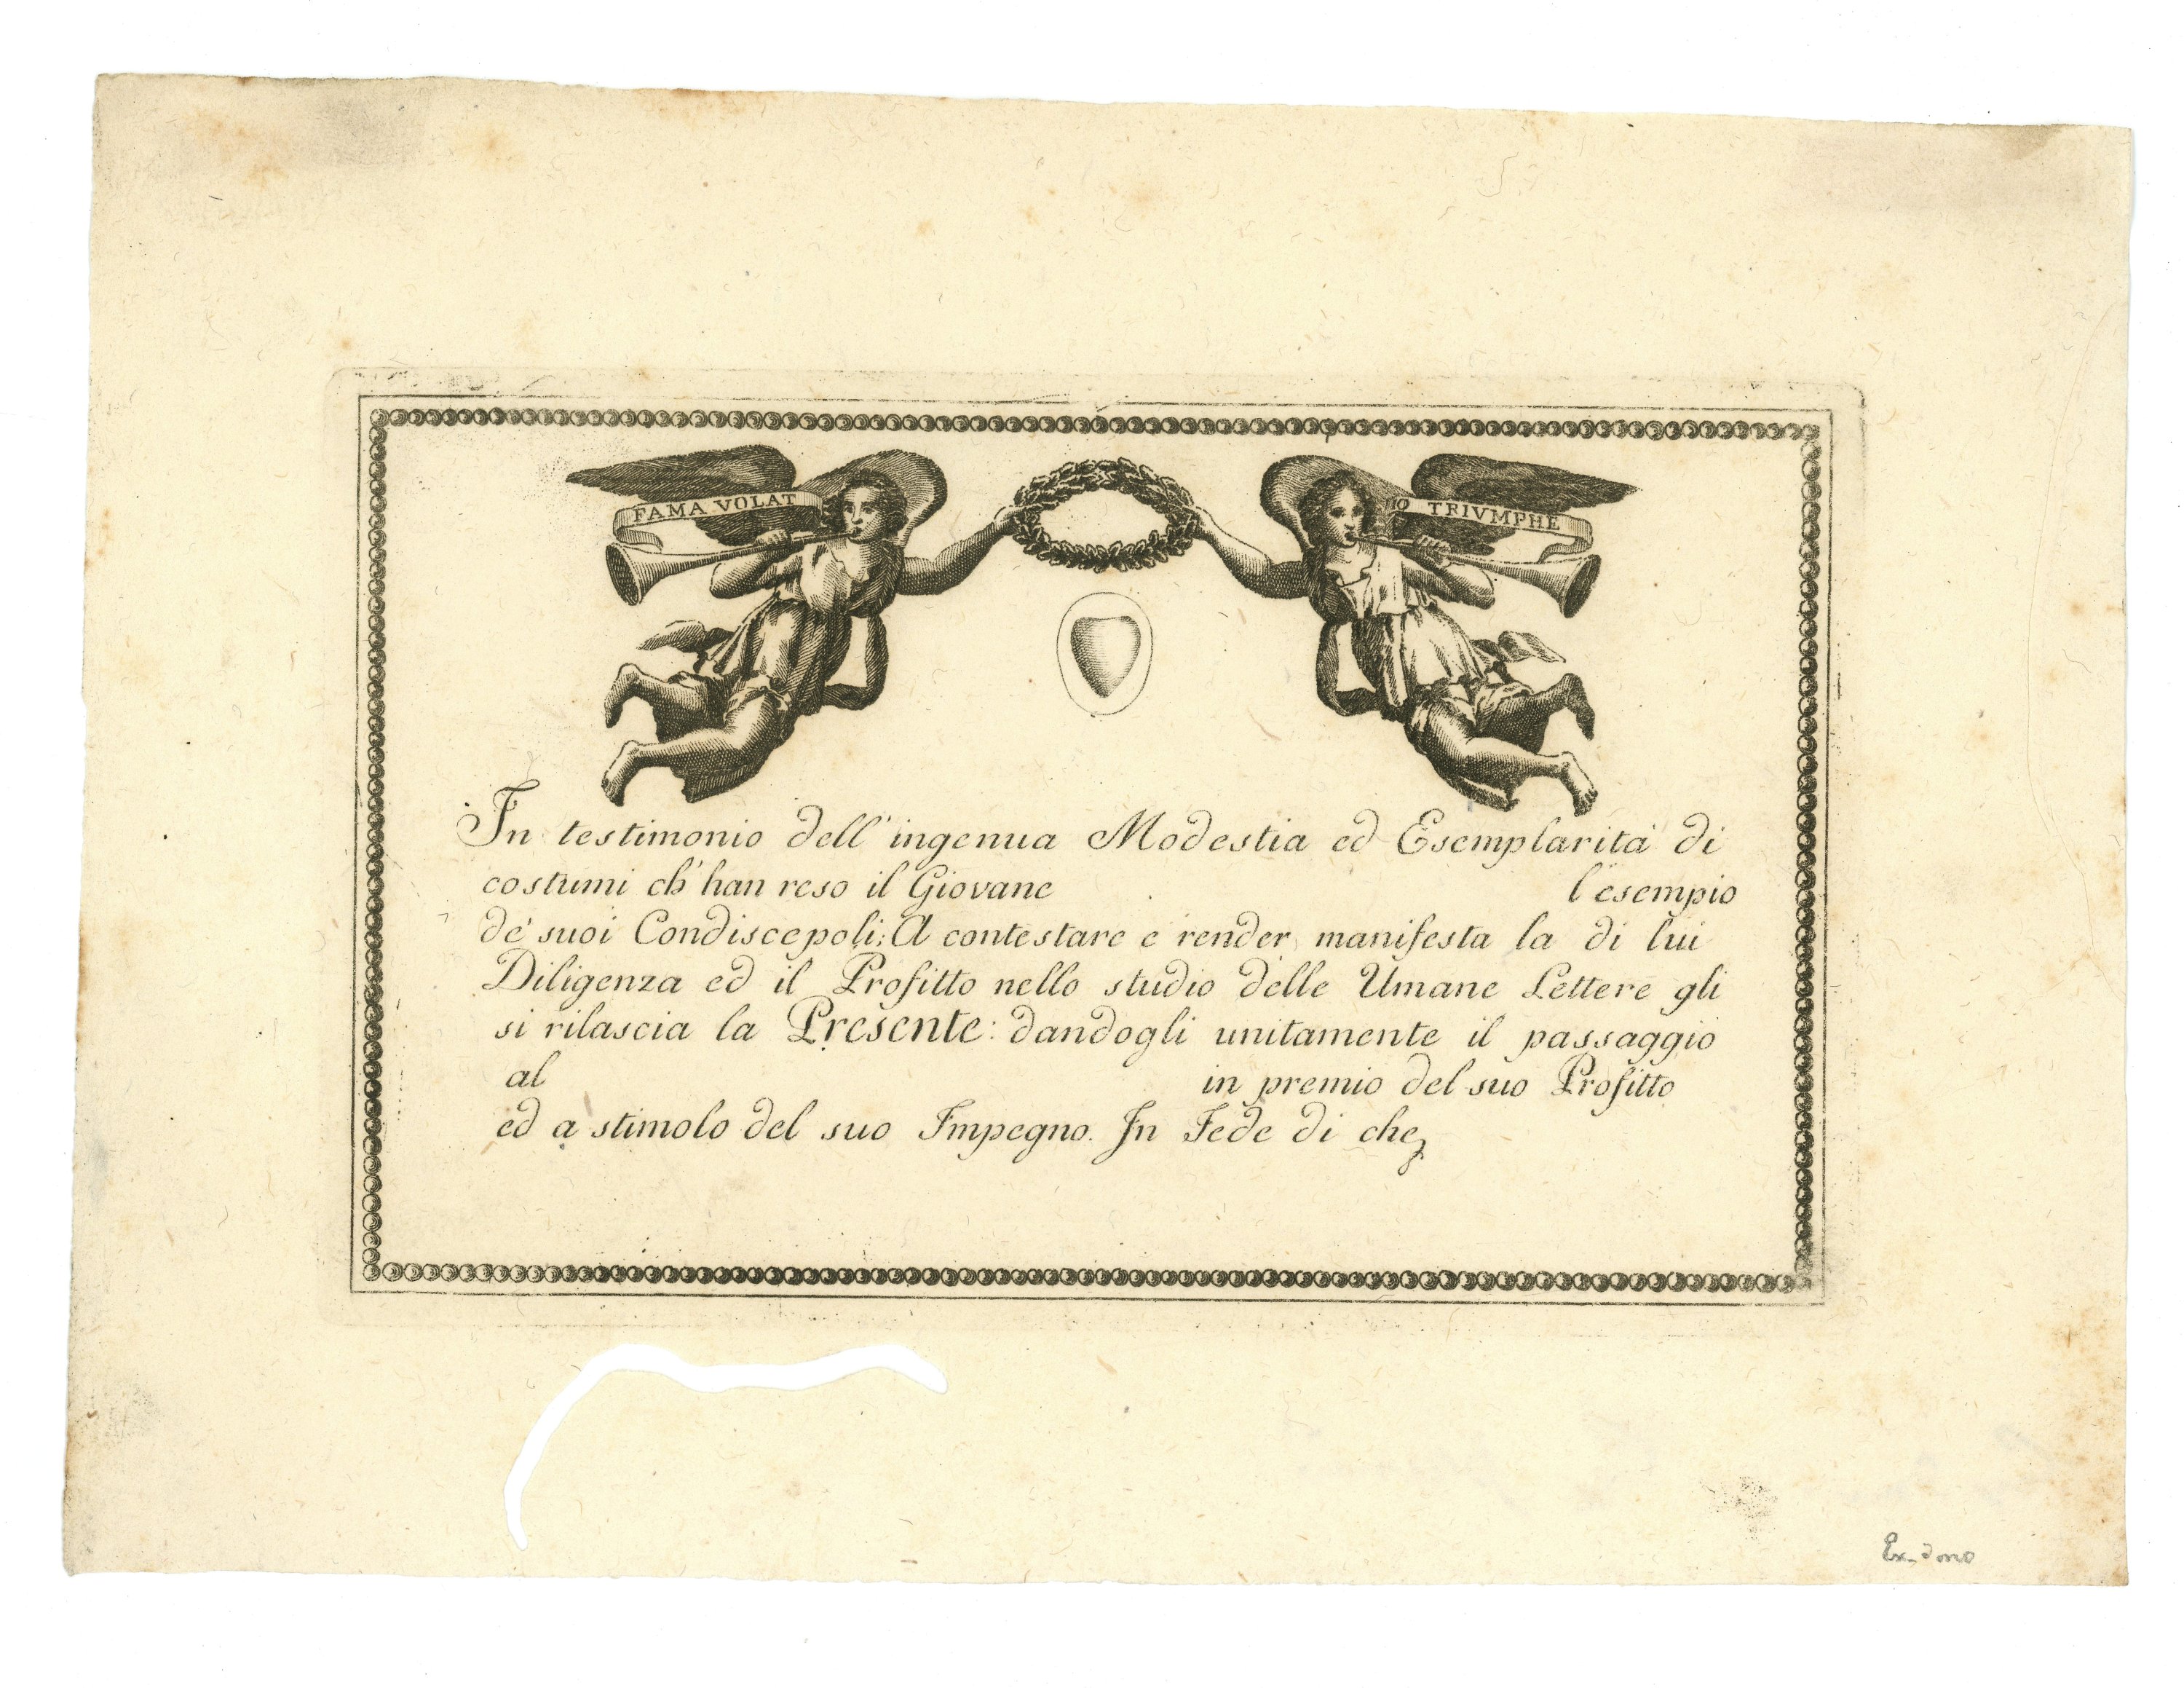 FAMA VOLAT
IO TRIVMPHE
In testimonio dell' ingenua Modestia ed Esemplarita' di
costumi ch' han reso il Giovane l'esempio
de' suoi Condiscepoli; A contestare e render manifesta la di lui
Diligenza ed il Profitto nello studio delle Umane Lettere gli
si rilascia la Presente: dandogli unitamente il passaggio
al in premio del suo Profitto
ed a stimolo del suo Impegno. In Fede di che
Ex-dono